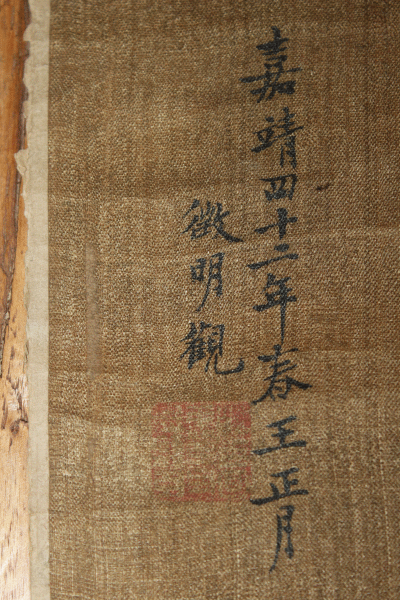 嘉靖四十二年春王正月
徵明觀